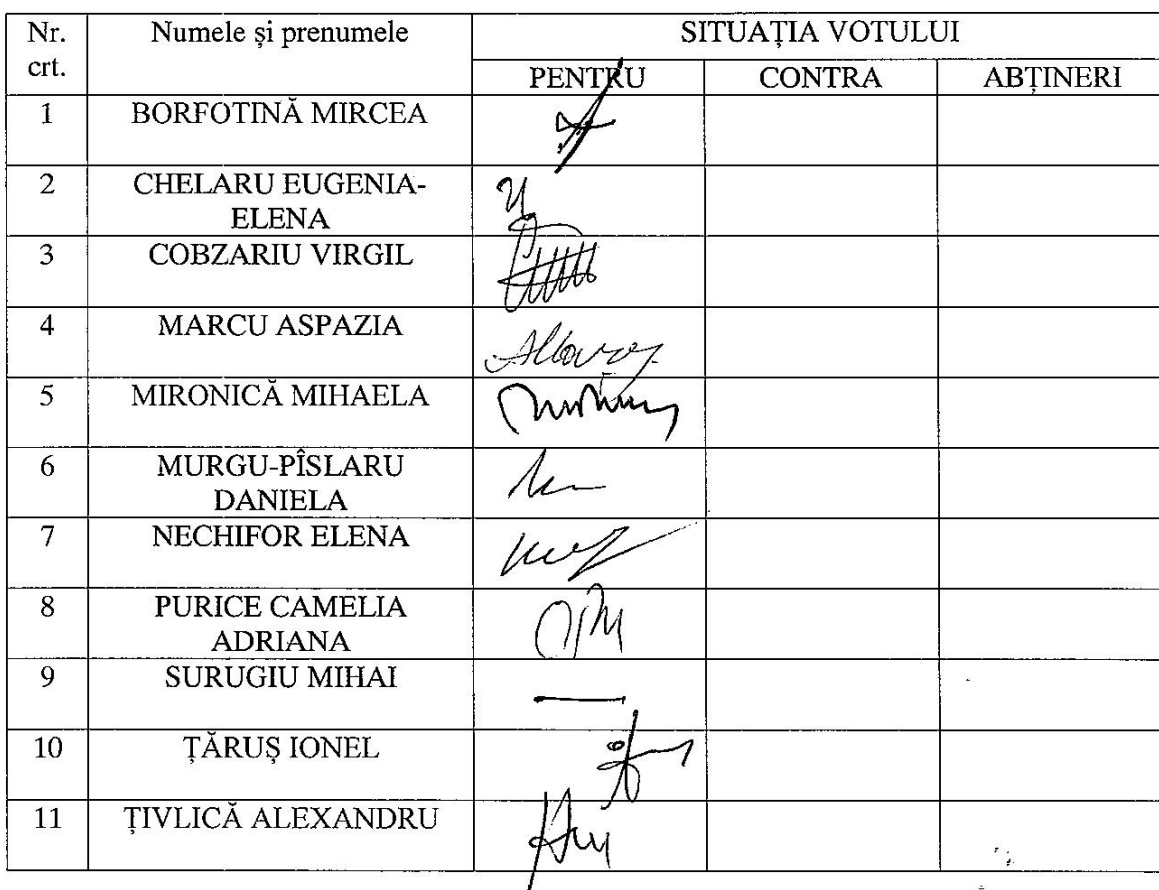 Nr. crt.
Numele și prenumele
SITUAȚIA VOTULUI
PENTRU
CONTRA
ABȚINERI
1
BORFOTINĂ MIRCEA
2
CHELARU EUGENIA-
ELENA
3
COBZARIU VIRGIL
4
MARCU ASPAZIA
5
MIRONICĂ MIHAELA
6
MURGU-PÎSLARU
DANIELA
7
NECHIFOR ELENA
8
PURICE CAMELIA
ADRIANA
9
SURUGIU MIHAI
—
10
ȚĂRUȘ IONEL
11
ȚIVLICĂ ALEXANDRU